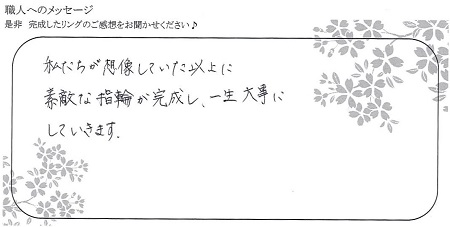 職人へのメッセージ
是非 完成したリングのご感想をお聞かせください♪
私たちが想像していた以上に
素敵な指輪が完成し、一生大事に
していきます.